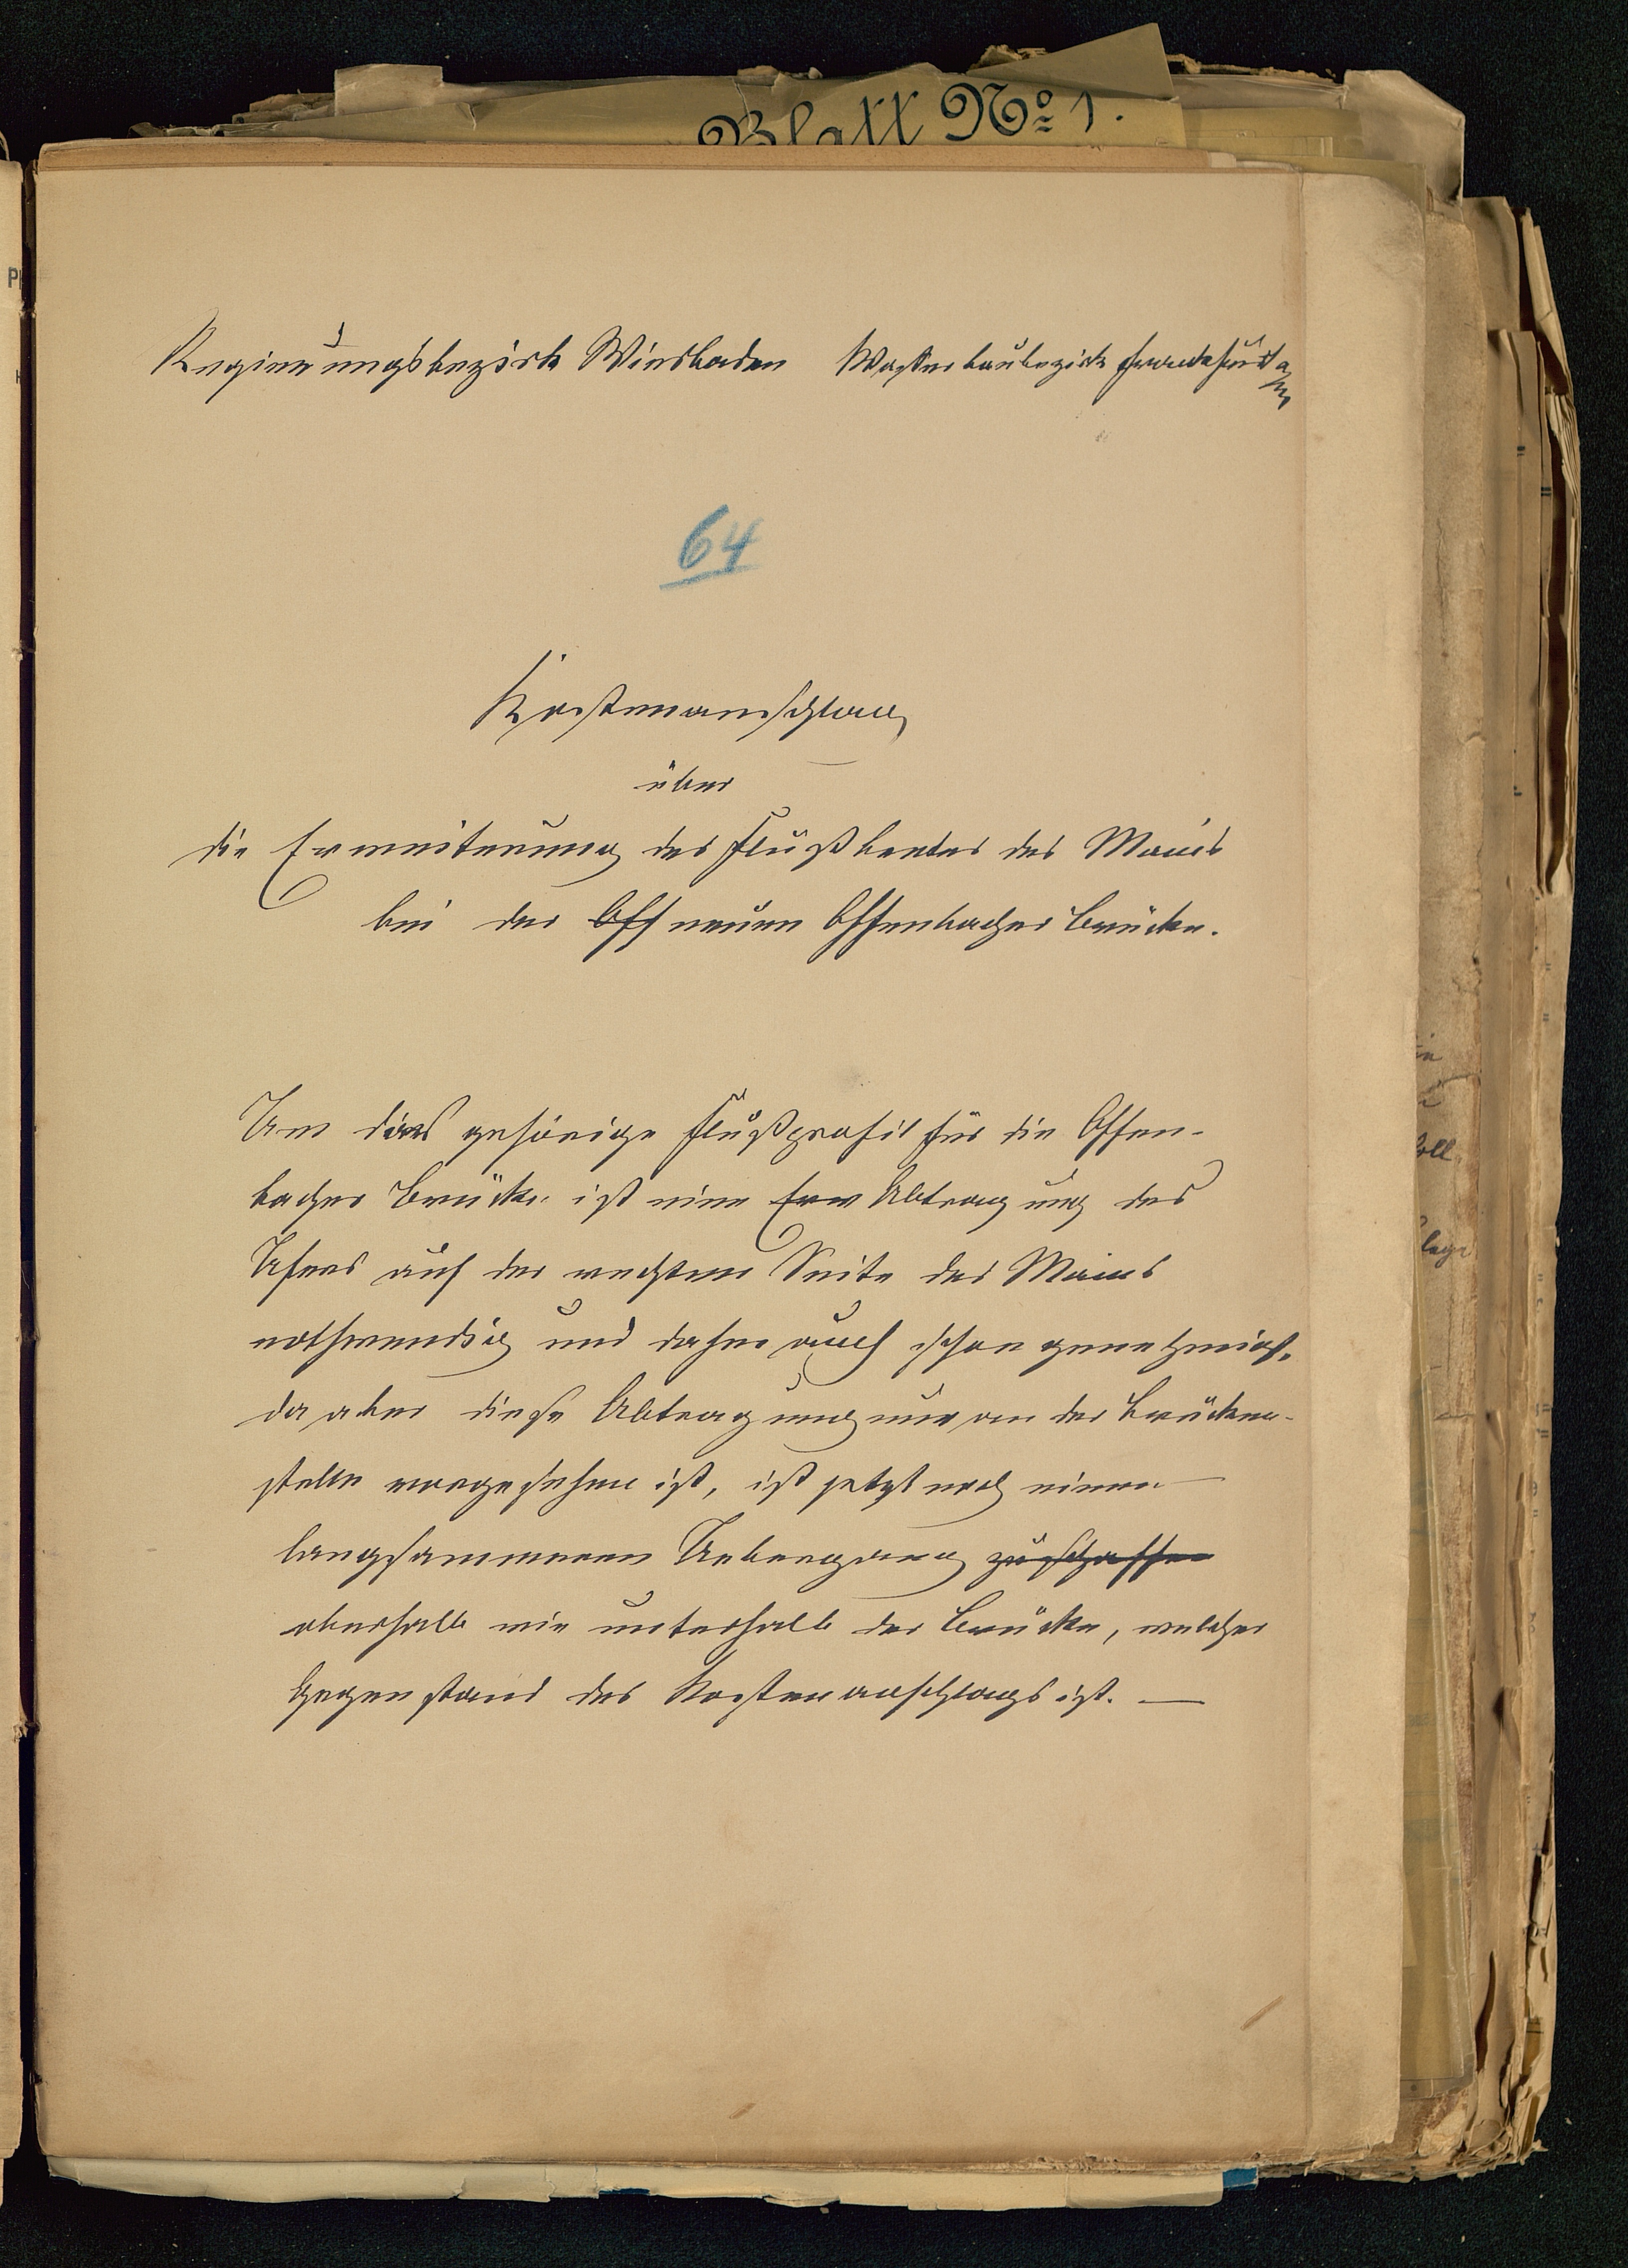 Blatt No 1.
Regierungsbezirk Wiesbaden Wasserbaubezirk Frankfurt a/M
64
Kostenanschlag
über
die Erweiterung des Flußbettes des Mains
bei der Off neuen Offenbacher Brücke.
Um das gehörige Flußprofil für die Offen-
bacher Brücke ist eine Erw Abtragung des
Ufers auf der rechten Seite des Mains
nothwendig und daher auch schon genehmigt.
da aber diese Abtragung nur an der Brücken-
stelle vorgesehen ist, ist jetzt noch einen
langsammeren Uebergang zu schaffen
oberhalb wie unterhalb der Brücke, welcher
Gegenstand des Kostenanschlags ist. —